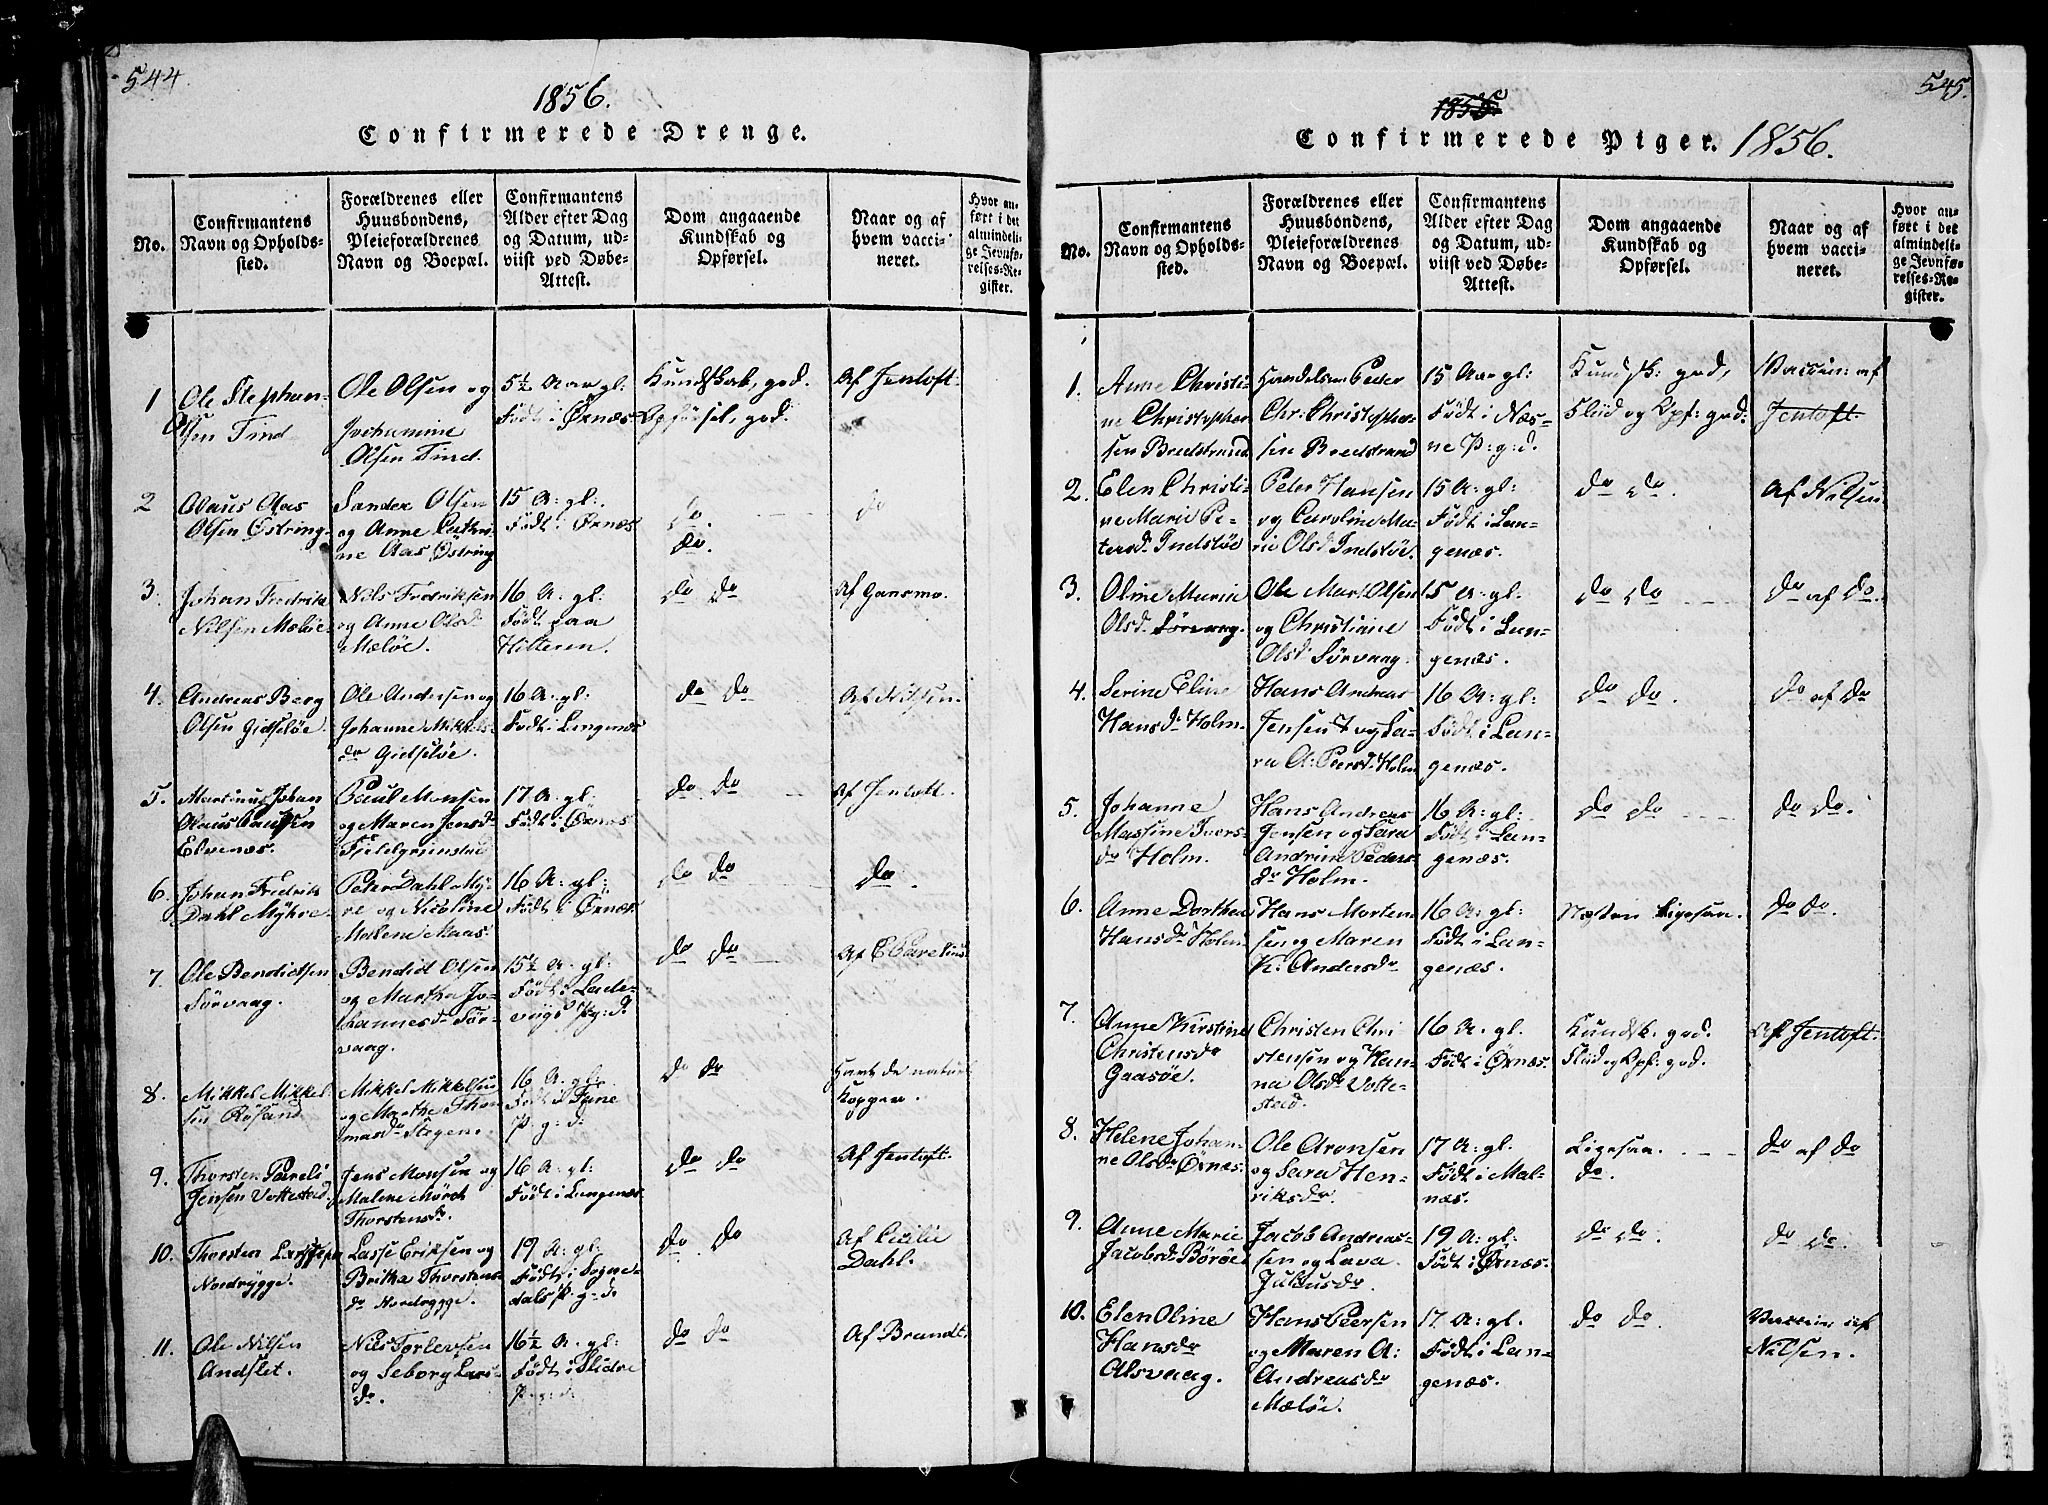 544.
1856.
Confirmerede Drenge.
No.
Confirmantens
Navn og Opholds-
sted.
Forældrenes eller
Huusbondens,
Pleieforældrenes
Navn og Boepæl.
Confirmantens
Alder efter Dag
og Datum, ud-
viist ved Døbe-
Attest.
Dom angaaende
Kundskab og
Opførsel.
Naar og af
hvem vacci-
neret.
Hvor an-
ført i det
almindeli-
ge Jevnfø-
relses-Re-
gister.
1
Ole Stephan-
Olsen Tind
Ole Olsen og
Jochamine
Olsen Tind.
5½ Aar gl:
Født i Ørnæs
Kundskab, god.
Opførsel, god.
Af Jentoft.
2
Olaus Aas
Olsen Østring
Sander Olsen
og Anne Cathri-
ne Aas Østring
15 A: gl:
Født i Ørnæs
do.
do.
do
3.
Johan Fredrik
Nilsen Meløe.
Nils Fredriksen
og Anne Olsd
Meløe.
16 A. gl:
Født paa
Hitteren.
do do
Af Gansmo.
4.
Andreas Berg
Olsen Gidseløe.
Ole Andersen og
Johanne Mikkels-
dr Gidseløe.
16 A: gl:
Født i Langenæs
do do
Af Nilsen.
5.
Martinus Johan
Olaus Paulsen
Elvenæs.
Paul Monsen
og Maren Jensd.
17 A: gl:
Født i Ørnæs
do. do
Af Jentoft.
6.
Johan Fredrik
Dahl Myhre.
Peter Dahl My-
re og Nicoline
Malene Maas
16 A: gl:
Født i Ørnæs
do do
do.
7.
Ole Bendidsen
Sørvaag.
Bendid Olsen
og Martha Jo-
hannesdr Sør-
vaag.
15½ A. gl:
Født i Lade-
viigs P: g: d:
do do
Af E Parelius
8.
Mikkel Mikkel
sen Røsand
Mikkel Mikkelsen
og Marthe Thom
masdr Stegen.
16 A. gl:
Født i Fane
P: g: d:
do do
Havt de natur
Kopper.
9.
Thorsten Pareli
Jensen Vottestad.
Jens Monsen og
Malene Mörch
Thorstensdr.
16 A: gl:
Født i Langenæs
do do
Af Jentoft.
10.
Thorsten Larssen
Nordrygge.
Lasse Eriksen og
Britha Thorstens
dr Nordrygge.
19 A: gl:
Født i Sogne-
dals P: g: d:
do do
Af Cicilie
Dahl.
11.
Ole Nilsen
Andslet.
Nils Torlevsen
og Seborg Lars
dr.
16½ A. gl:
Født i Slidre
P: g: d:
do do
Af Brandt.
545.
1855
Confirmerede Piger. 1856.
No.
Confirmantens
Navn og Opholds-
sted.
Forældrenes eller
Huusbondens,
Pleieforældrenes
Navn og Boepæl.
Confirmantens
Alder efter Dag
og Datum, ud-
viist ved Døbe-
Attest.
Dom angaaende
Kundskab og
Opførsel.
Naar og af
hvem vacci-
neret.
Hvor an-
ført i det
almindeli-
ge Jevnfø-
relses-Re-
gister.
1.
Anne Christi-
ne Christopher
sen Bredstrand
Handelsm Peder
Chr: Christopher
sen Bredstrand
15 Aar gl:
Født i Næs-
ne P: g: d.
Kundsk: god,
Fliid og Opf: god.
Vaccin: af
Jentoft.
2.
Elen Christi-
ne Marie Pe-
tersd. Indsløe
Peter Hansen
og Caroline Ma-
rie Olsd Indsløe.
15 A: gl:
Født i Lan-
genæs.
do do.
Af Nilsen
3.
Oline Marie
Olsd. Sørvaag.
Ole Mart Olsen
og Christiane
Olsd Sørvaag.
15 A: gl:
Født i Lan-
genæs.
do do
do af do.
4.
Serine Eline
Hansdr Holm.
Hans Andreas
Jensen + og Sa-
ra A: Peersd. Holm
16 A: gl:
Født i Lan-
genæs.
do do.
do af do
5.
Johanne
Massine Ivers-
dr Holm.
Hans Andreas
Jensen og Sara
Andrine Peders
dr Holm.
16 A: gl:
Født i Lan-
genæs.
do do
do do.
6.
Anne Dorthea
Hansdr Holm
Hans Morten
sen og Maren
K: Andersdr
16 A: gl:
Født i Lan-
genæs.
Næsten ligesaa.
do do.
7.
Anne Kirstine
Christensdr
Gaasøe.
Christen Chri
stensen og Han-
na Olsdr Votte-
stad.
16 A: gl.
Født i Ørnæs.
Kundsk. god.
Fliid og Opf: god.
Af Jentoft.
8.
Helene Johan
ne Olsdr Ørnæs.
Ole Aronsen
og Sara Hen-
riksdr.
17 A: gl.
Født i Mal-
næs.
Ligesaa.
do.
do af do
9.
Anne Marie
Jacobsdr Börøe
Jacob Andreas-
sen og Lava
Juliusdr
19 A: gl:
Født i Ørnæs.
do do.
do do.
10.
Elen Oline
Hansdr
Alsvaag.
Hans Peersen
og Maren A:
Andreasdr
Meløe.
17 A: gl.
Født i Lan-
genæs.
do do
Vaccin: af
Nilsen.